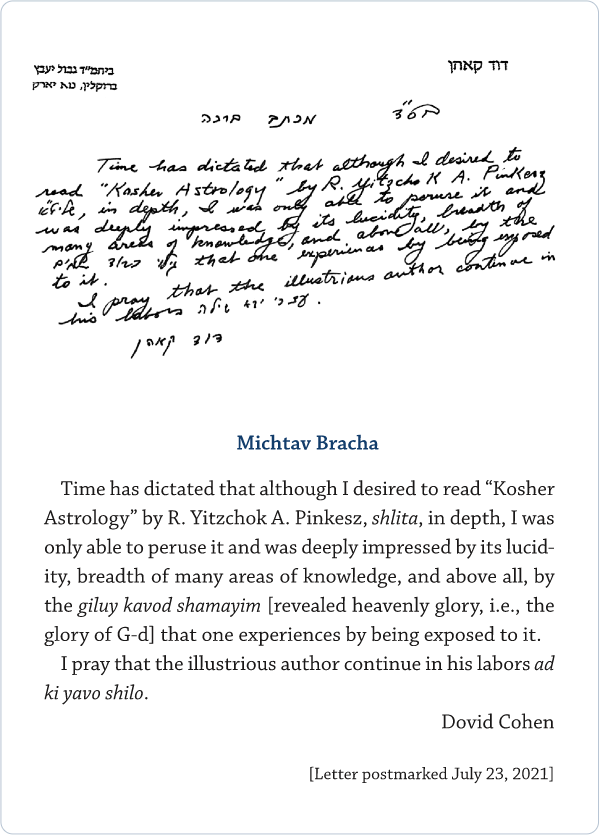 דוד קאהן
ביהמ"ד גבול יעבץ
ברוקלין, נוא יארק
בס"ד
מכתב ברכה
Time has dictated that although I desired to
read "Kosher Astrology" by R. Yitzchok A. Pinkesz
שליט"א, in depth, I was only able to peruse it and
was deeply impressed by its lucidity, breadth of
many areas of knowledge, and above all, by the
גילוי כבוד שמים that one experiences by being exposed
to it.
I pray that the illustrious author continue in
his labors עד כי יבא שילה.
דוד קאהן
Michtav Bracha
Time has dictated that although I desired to read “Kosher
Astrology” by R. Yitzchok A. Pinkesz, shlita, in depth, I was
only able to peruse it and was deeply impressed by its lucid-
ity, breadth of many areas of knowledge, and above all, by
the giluy kavod shamayim [revealed heavenly glory, i.e., the
glory of G-d] that one experiences by being exposed to it.
I pray that the illustrious author continue in his labors ad
ki yavo shilo.
Dovid Cohen
[Letter postmarked July 23, 2021]